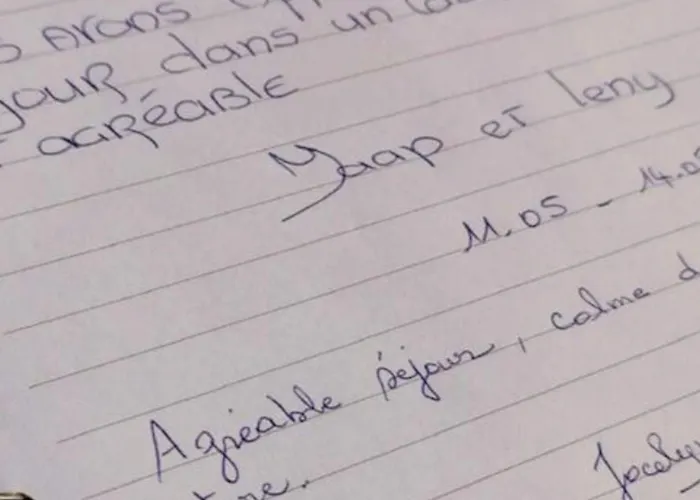 AVONS
JOUR dans un
AGRÉABLE
Jaap et leny
11.05 - 14.0
Agréable séjour, calme d
Jocely